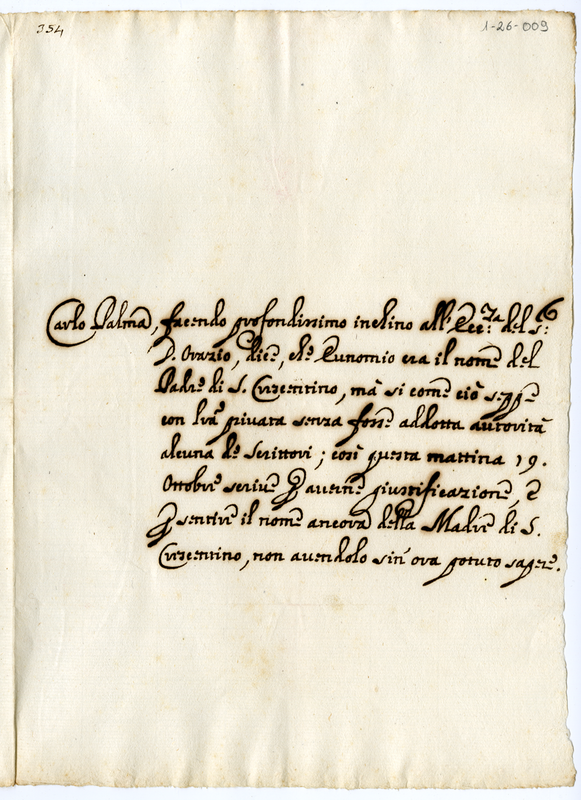 354
1-26-009
Carlo Palma, facendo profondissimo inchino all' Ecc:za del S:r
D. Orazio, dice, che Eunomio era il nome del
Padre di S. Crescentino, mà si come ciò seppe
con lra privata senza fosse addotta autorità
alcuna de Scrittori; così questa mattina 19.
Ottobre scrive p averne giustificazione, e
p sentire il nome ancora della Madre di S.
Crescentino, non avendolo sin' ora potuto sapere.